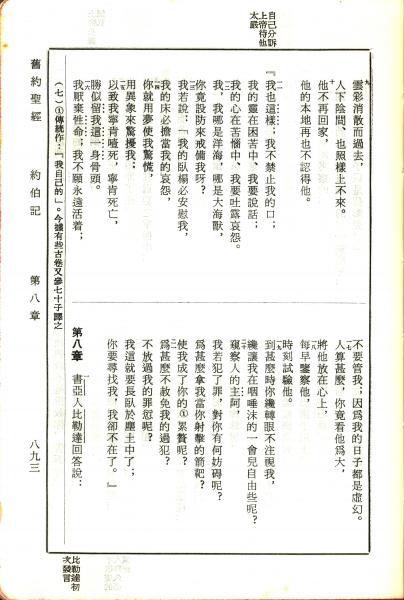 自己分訴
上帝待他
太嚴
九雲彩消散而過去,
人下陰間、也照樣上不來。
他不再回家,
他的本地再也不認得他。
『我也這樣;我不禁止我的口;
我的靈在困苦中、我要說話;
我的心在苦惱中、我要吐露哀怨。
我,我哪是洋海,哪是大海獸,
你竟設防來戒備我呀?
我若說:「我的臥榻必安慰我,
我的床必擔當我的哀怨,
你就用夢使我驚慌,
用異象來驚擾我;
以致我寧肯噎死,寧肯死亡,
勝似留我這一身骨頭。
我厭棄性命;我不願永遠活着;
不要管我;因爲我的日子都是虛幻。
人算甚麼,你竟看他爲大,
將他放在心上,
每早鑒察他,
時刻試驗他。
到甚麼時你纔轉眼不注視我,
纔讓我在咽唾沫的一會兒自由些呢?
窺察人的主阿,
我若犯了罪,對你有何妨礙呢?
爲甚麼拿我當你射擊的箭靶?
使我成了你的①累贅呢?
爲甚麼不赦免我的過犯?
不放過我的罪愆呢?
我這就要長臥於塵土中了;
你要尋找我,我卻不在了。』
第八章 書亞人比勒達回答說:
比勒達初
次發言
(七)①傳統作:「我自己的」。今據有些古卷又參七十子譯之
舊約聖經 約伯記 第八章 八九三